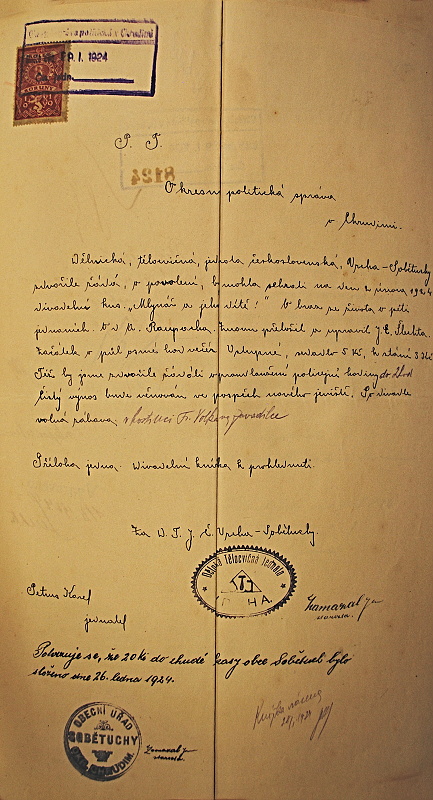 29. I. 1924
KORUNY
5
8124
P. T.
Okresní politická správa
v Chrudimi.
Dělnická, tělocvičná, jednota československá, Vrcha-Sobětuchy
zdvořile žádá, o povolení, by mohla sehrati na den 2 února 1924
divadelní kus. „Mlynář a jeho dítě!" O hra ze života v pěti
jednáních. Od K. Raupacha, znovu přeložil a upravil J. E. Šlechta.
Začátek o půl osmé hod večer. Vstupné, sedadlo 5 Kč, k stání 3 Kč
Též by jsme zdvořile žádali o prodloužení policejní hodiny do 2 hod
čistý výnos bude věnován ve prospěch nového jeviště. Po divadle
volná zábava, v hostinci Fr. Volhany
Příloha jedna. Divadelní knížka k prohlédnutí.
Za D. T. J. Č. Vrcha-Sobětuchy.
Dělnická Tělocvičná Jednota
Petrus Karel
jednatel
Zamazal J
starosta.
Potvrzuje se, že 20 Kč do chudé kasy obce Sobětuch bylo
složeno dne 26. ledna 1924.
OBECNÍ ÚŘAD
SOBĚTUCHY
CHRUDIM
Zamazal J
starosta
Knížka
1924